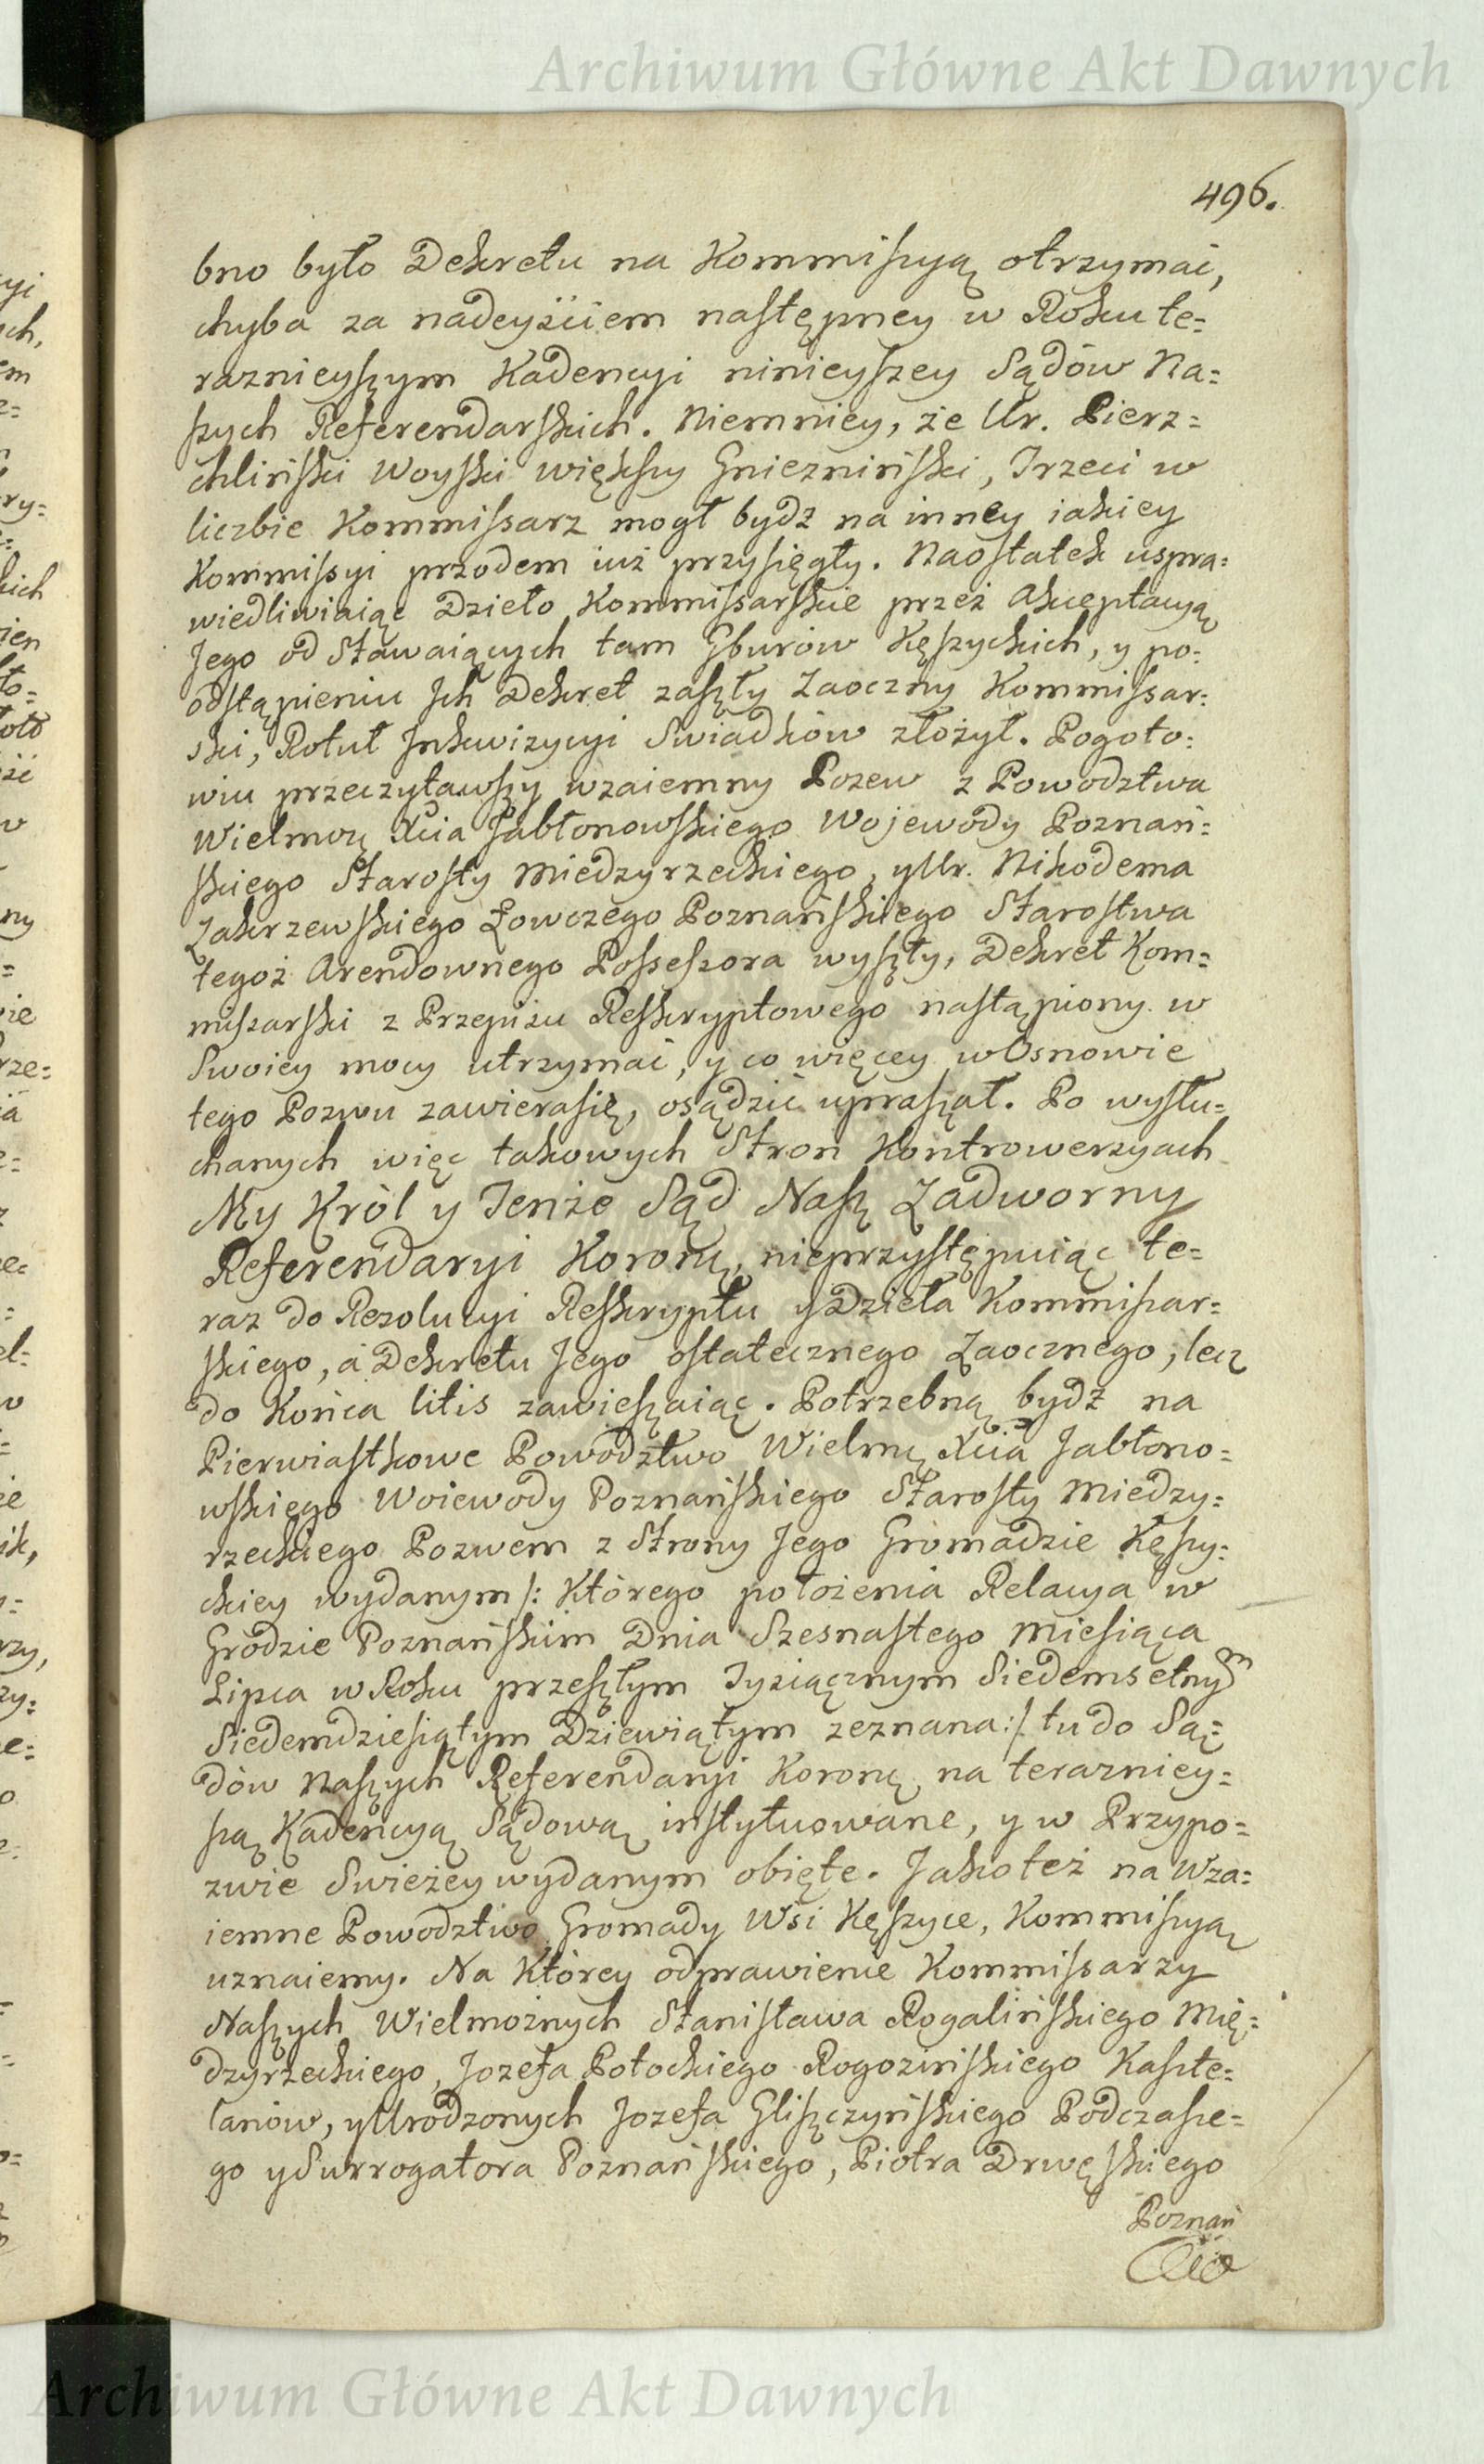 Archiwum Główne Akt Dawnych
496.
bno było Dekretu na Kommiszyą otrzymać,
chyba za nadeyściem następney w Roku te=
raznieyszym Kadencyi ninieyszey Sądów Na=
szych Referendarskich. Niemniey, że Ur. Pierz=
chliński Woyski większy Gniezniński, Trzeci w
liczbie Kommissarz mogł bydz na inney iakiey
Kommissyi przodem iuż przysięgły. Naostatek uspra=
wiedliwiaiąc Dzieło Kommissarskie przez Akceptacyą
Jego od Stawaiących tam Gburów Kęszyckich, y po=
odstąpieniu Jch Dekret zaszły Zaoczny Kommissar=
ski, Rotuł Jnkwizycyi Swiadków złożył. Pogoto=
wiu przeczytawszy wzaiemny Pozew z Powodztwa
Wielmoż Xcia Jabłonowskiego Wojewody Poznań=
skiego Starosty Miedzyrzeckiego, y Ur. Nikodema
Zakrzewskiego Łowczego Poznańskiego Starostwa
tegoż Arendownego Possessora wyszły, Dekret Kom=
missarski z Przepisu Reskryptowego nastąpiony w
Swoiey mocy utrzymać, y co więcey w Osnowie
tego Pozwu zawiera się, osądzić upraszał. Po wysłu=
chanych więc takowych Stron Kontrowersyach
My Król y Tenże Sąd Nasz Zadworny
Referendaryi Koronę, nieprzystępuiąc te=
raz do Rezolucyi Reskryptu y Dzieła Kommissar=
skiego, a Dekretu Jego ostatecznego Zaocznego, lecz
do Końca litis zawieszaiąc. Potrzebną bydź na
Pierwiastkowe Powodztwo Wielmę Xcia Jabłono=
wskiego Woiewody Poznańskiego Starosty Miedzy=
rzeckiego Pozwem z Strony Jego Gromadzie Kęszy=
ckiey wydanym /: Którego położenia Relacya w
Grodzie Poznańskim Dnia Szesnastego Miesiąca
Lipca w Roku przeszłym Tysiącznym Siedemsetnym
Siedemdziesiątym Dziewiątym zeznana :/ tu do Są=
dów Naszych Referendaryi Koronę na terazniey=
szą Kadencyą Sądową instytuowane, y w Przypo=
zwie Swieżey wydanym obięte. Jako też na Wza=
iemne Powodztwo Gromady Wsi Kęszyce, Kommiszyą
uznaiemy. Na Którey odprawienie Kommissarzy
Naszych Wielmożnych Stanisława Rogalińskiego Mię=
dzyrzeckiego, Jozefa Potockiego Rogozińskiego Kaszte=
lanów, y Urodzonych Jozefa Gliszczyńskiego Podczasze=
go y Surrogatora Poznańskiego, Piotra Drwęskiego
Poznań
Archiwum Główne Akt Dawnych